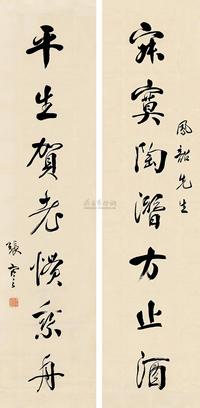 寂寞陶潛方止酒
鳳韶先生
平生賀老慣乘舟
張